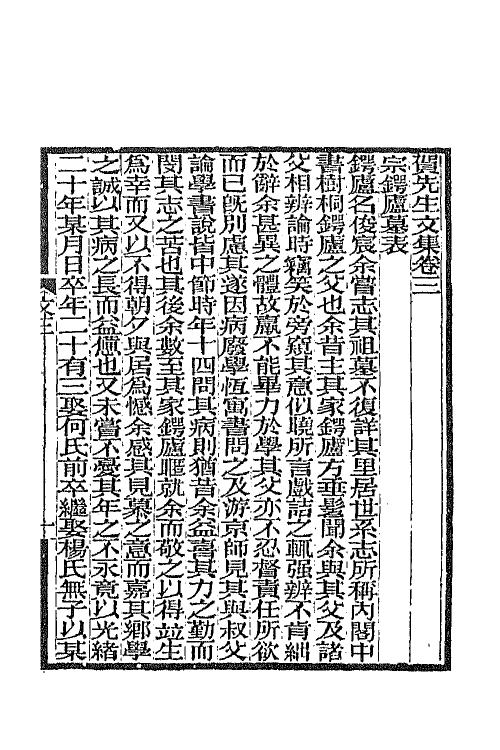 賀先生文集卷三
宗鍔廬墓表
鍔廬名俊宸余嘗志其祖墓不復詳其里居世系志所稱內閣中
書樹桐鍔廬之父也余昔主其家鍔廬方垂髫聞余與其父及諸
父相辨論時竊笑於旁窺其意似曉所言戲詰之輒强辨不肯絀
於辭余甚異之體故羸不能畢力於學其父亦不忍督責任所欲
而已既別慮其遂因病廢學恆寓書問之及游京師見其與叔父
論學書說皆中節時年十四問其病則猶昔余益喜其力之勤而
閔其志之苦也其後余數至其家鍔廬暱就余而敬之以得竝生
為幸而又以不得朝夕與居為憾余感其見慕之意而嘉其鄉學
之誠以其病之長而益憊也又未嘗不憂其年之不永竟以光緒
二十年某月日卒年二十有三娶何氏前卒繼娶楊氏無子以某
文三
十一